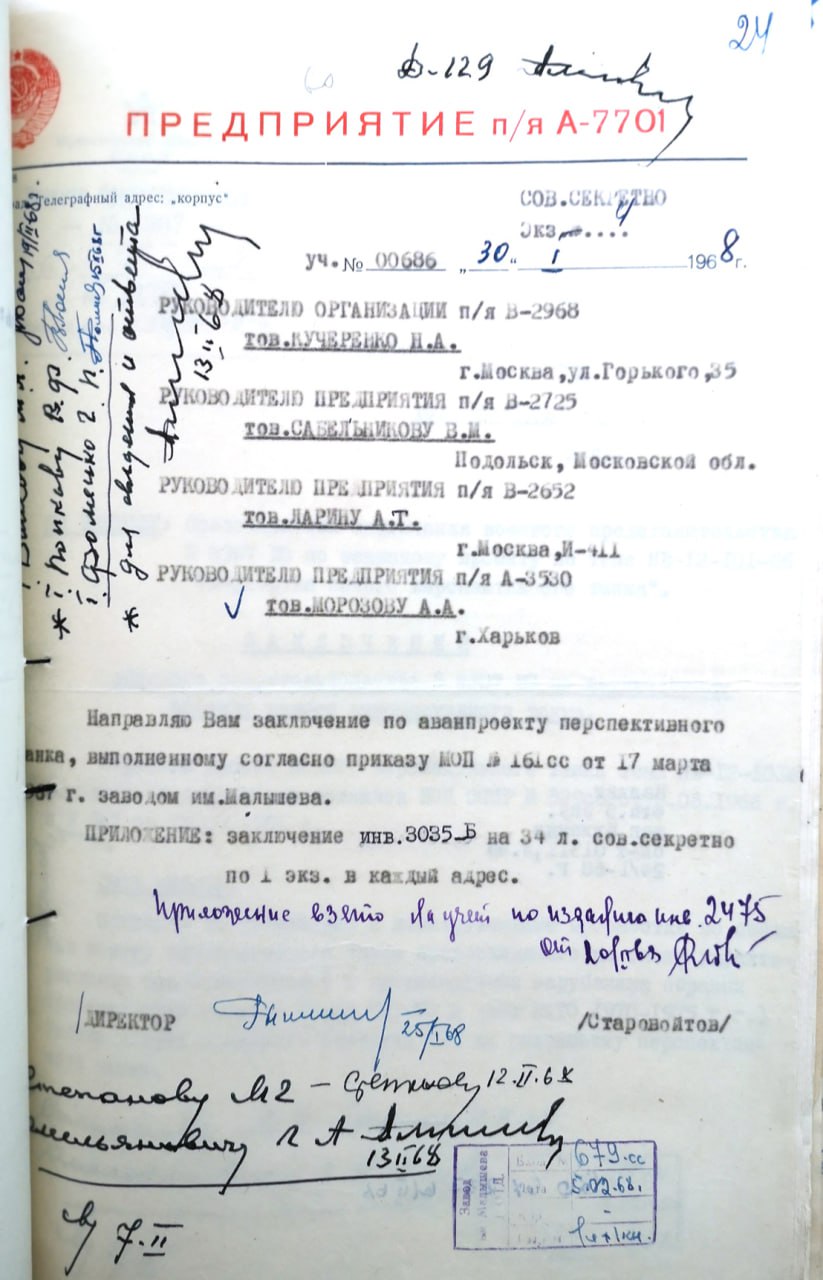 24
ПРЕДПРИЯТИЕ п/я А-7701
телеграфный адрес: „корпус"
СОВ.СЕКРЕТНО
Экз. 4
уч.№ 00686 „30" I 1968г.
РУКОВОДИТЕЛЮ ОРГАНИЗАЦИИ п/я В-2968
тов.КУЧЕРЕНКО Н.А.
г.Москва,ул.Горького,35
РУКОВОДИТЕЛЮ ПРЕДПРИЯТИЯ п/я В-2725
тов.САБЕЛЬНИКОВУ В.М.
Подольск, Московской обл.
РУКОВОДИТЕЛЮ ПРЕДПРИЯТИЯ п/я В-2652
тов.ЛАРИНУ А.Г.
г.Москва,И-411
РУКОВОДИТЕЛЮ ПРЕДПРИЯТИЯ п/я А-3530
тов.МОРОЗОВУ А.А.
г.Харьков
* Поликову В.Ф.
Фоменко Г.П.
* для сведения и ответа
13/II 68
Направляю Вам заключение по аванпроекту перспективного
анка, выполненному согласно приказу МОП № 161сс от 17 марта
г. заводом им.Малышева.
ПРИЛОЖЕНИЕ: заключение инв.3035-Б на 34 л. сов.секретно
по 1 экз. в каждый адрес.
Приложение взято на учет по изданию инв. 2475
от
ДИРЕКТОР 25/I 68 /Старовойтов/
Степанову М2 – 12.II.68
13 II 68
Завод
679сс
5.02.68.
-
7-II